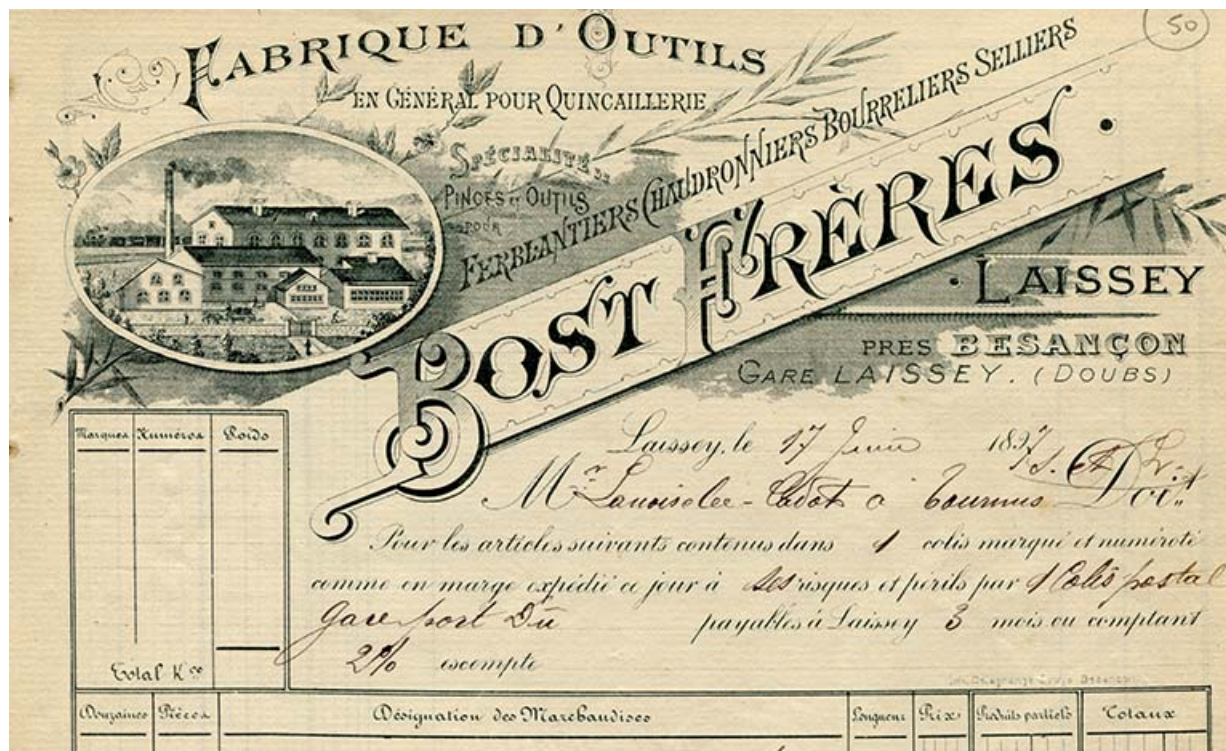 50
FABRIQUE D'OUTILS
EN GÉNÉRAL POUR QUINCAILLERIE
SPÉCIALITÉ DE
PINCES ET OUTILS
POUR
FERBLANTIERS CHAUDRONNIERS BOURRELIERS SELLIERS
BOST FRÈRES.
LAISSEY
PRES BESANÇON
GARE LAISSEY. (DOUBS)
Marques Numéros Poids
Laissey, le 17 Juin 1897
Mr Lanoiselee-Cadot à Tournus Doit
Pour les articles suivants contenus dans 1 colis marqué et numéroté
comme en marge expédié ce jour à ses risques et périls par 1 Colis postal
gare port Dû payables à Laissey 3 mois ou comptant
2% escompte
Total Kos
Douzaines Pièces Désignation des Marchandises Longueur Prix Produits partiels Totaux